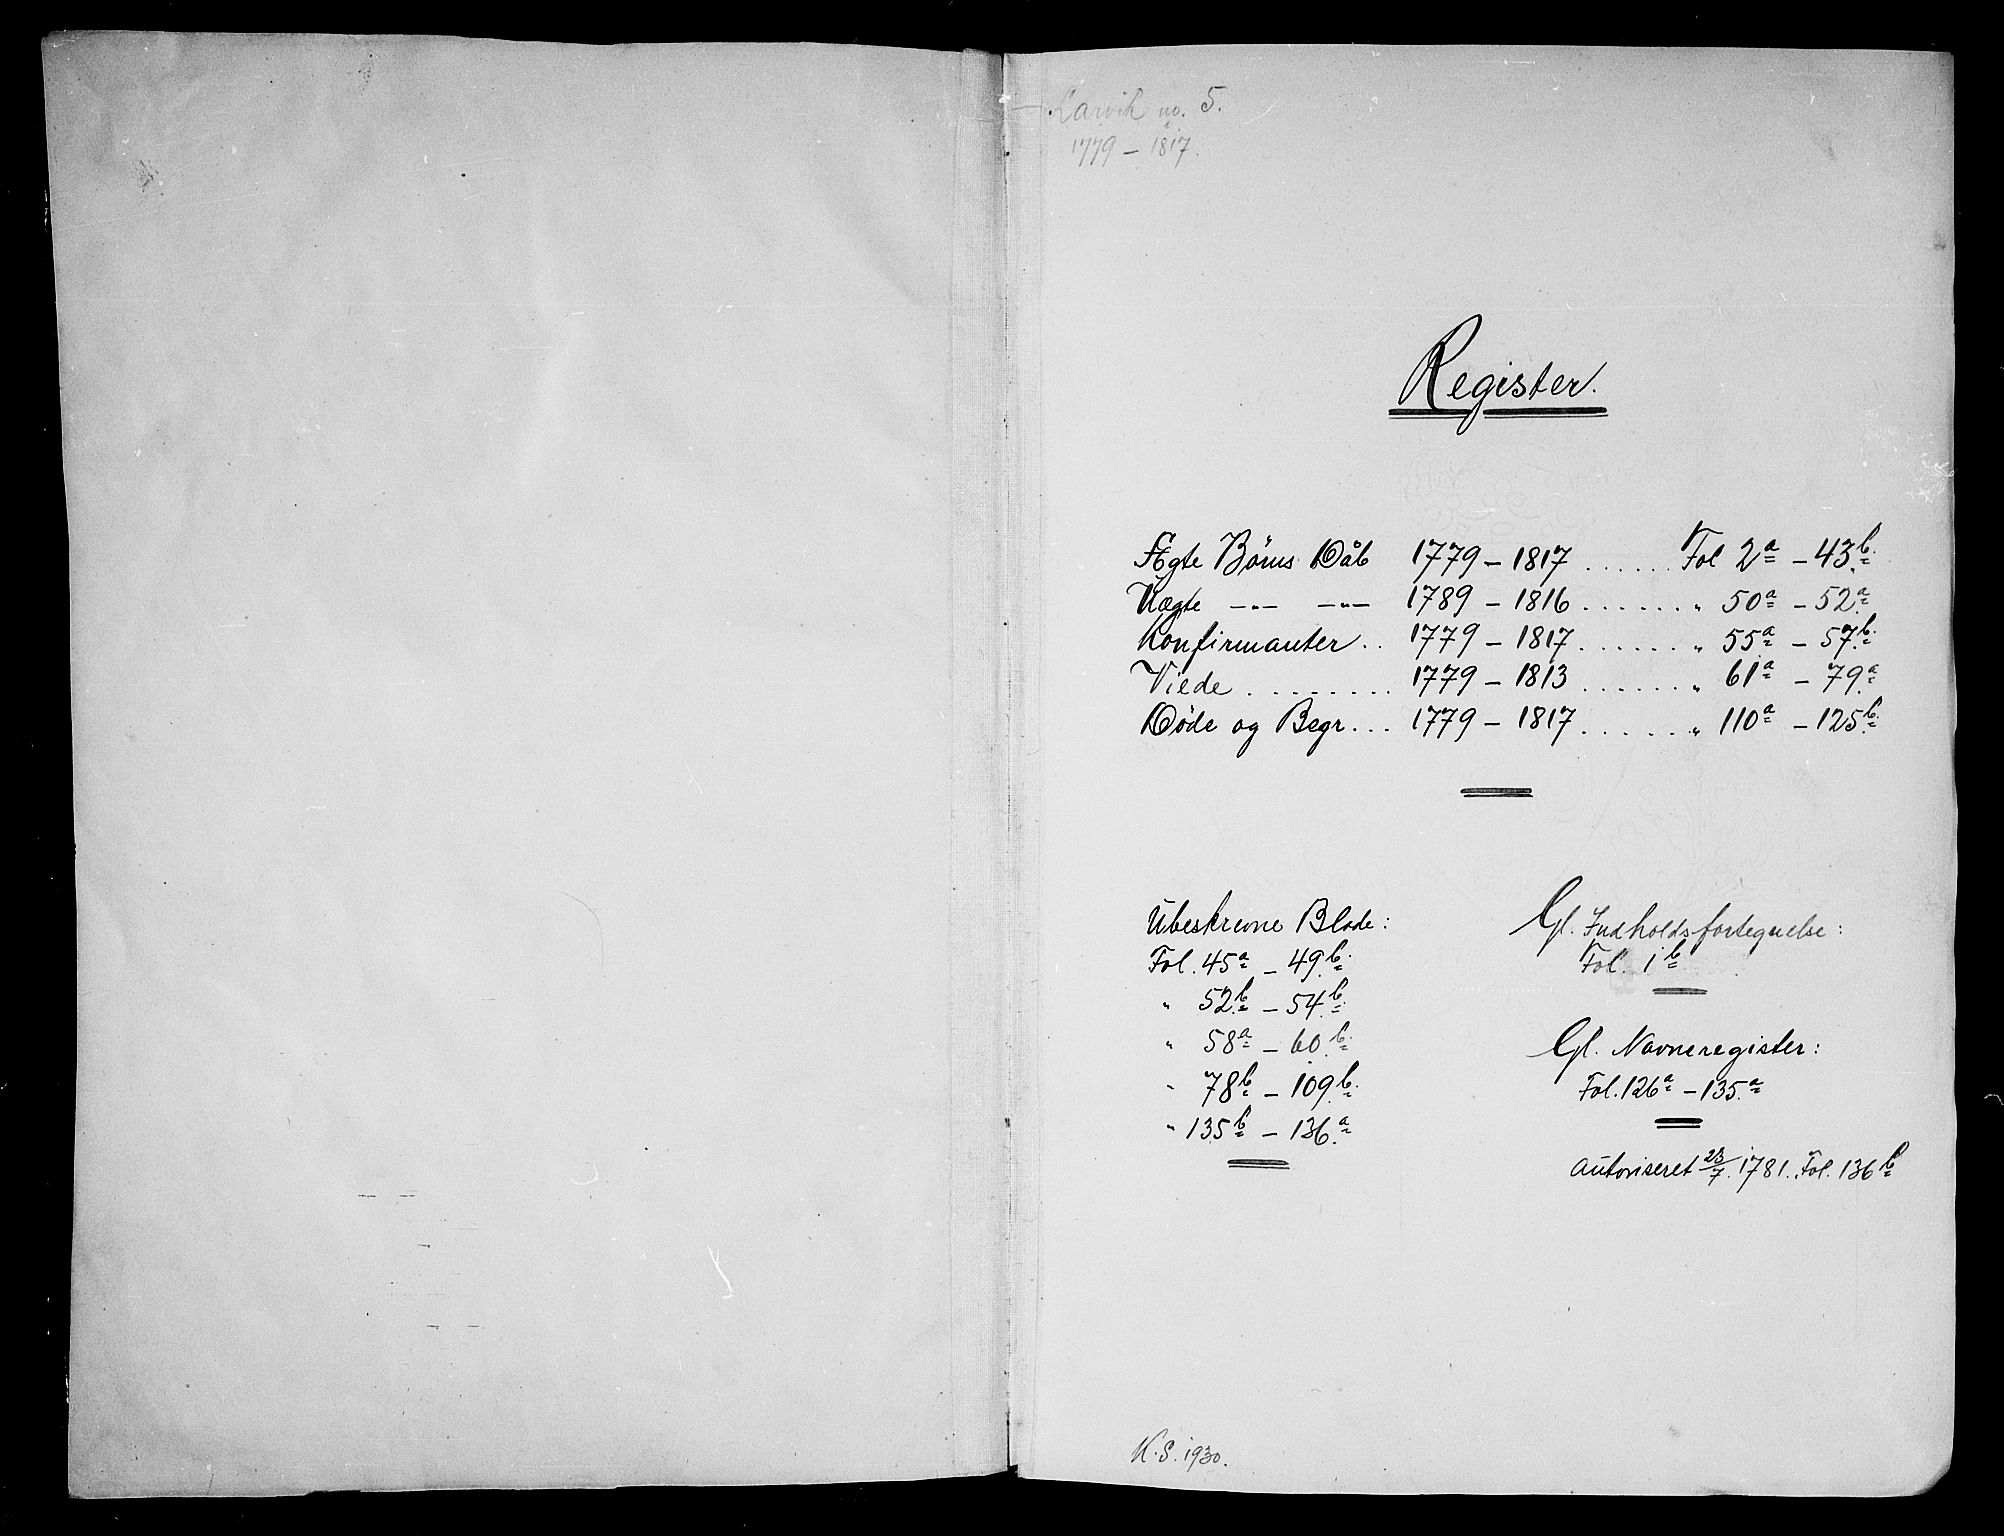 Larvik no. 5.
1779 – 1817.
Register.
Ægte Börns Dåb 1779 – 1817 ...... Fol 2a – 43b.
Uægte –"– –"– 1789 – 1816 ....... " 50a – 52a.
Konfirmanter .. 1779 – 1817 ....... " 55a – 57b.
Viede ......... 1779 – 1813 ....... " 61a – 79a.
Döde og Begr... 1779 – 1817 ....... " 110a – 125b.
Ubeskrevne Blade:
Fol. 45a – 49b.
" 52b – 54b.
" 58a – 60b.
" 78b – 109b.
" 135b – 136a.
Gl. Indholdsfortegnelse:
Fol. 1b
Gl. Navneregister:
Fol. 126a – 135a.
Autoriseret 23/7. 1781. Fol. 136b
K.S. 1930.